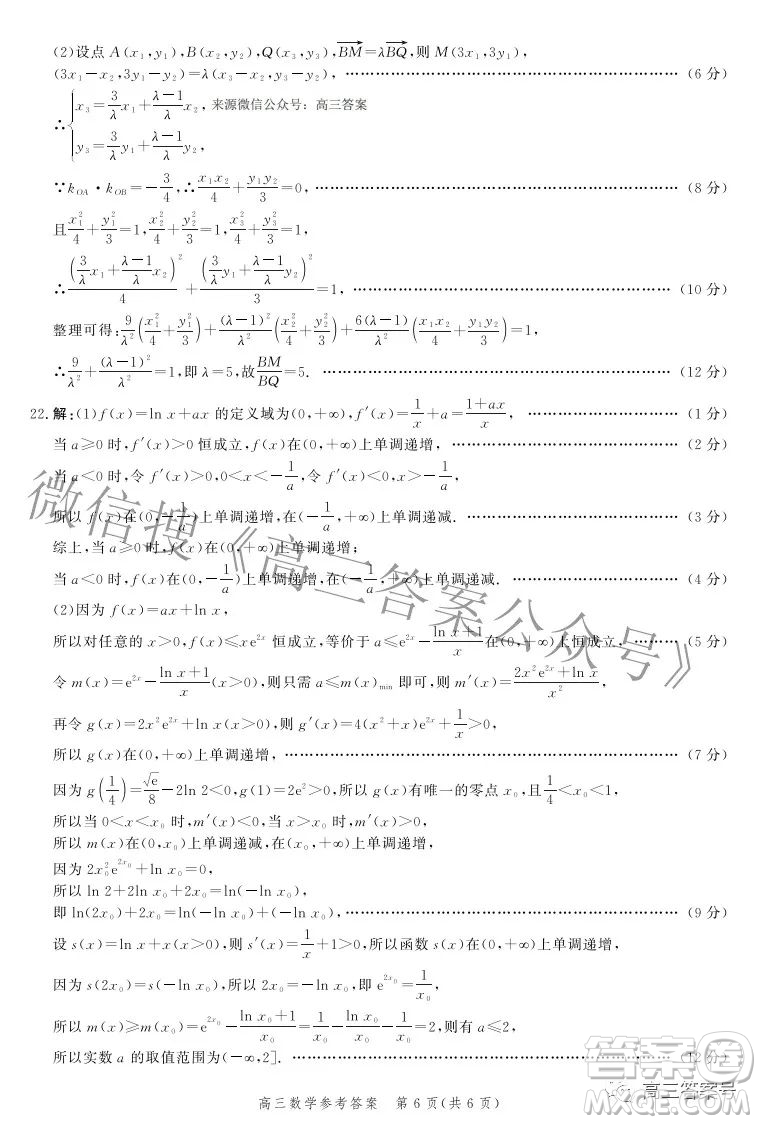 (2)设点 A(x₁,y₁),B(x₂,y₂),Q(x₃,y₃),\overrightarrow{BM}=λ\overrightarrow{BQ},则 M(3x₁,3y₁),
(3x₁-x₂,3y₁-y₂)=λ(x₃-x₂,y₃-y₂),……(6 分)
∴\begin{cases}x_3=\frac{3}{λ}x_1+\frac{λ-1}{λ}x_2,\\y_3=\frac{3}{λ}y_1+\frac{λ-1}{λ}y_2,\end{cases} 来源微信公众号:高三答案
∵k_{OA}·k_{OB}=-\frac{3}{4},∴\frac{x_1x_2}{4}+\frac{y_1y_2}{3}=0,……(8 分)
且\frac{x_1^2}{4}+\frac{y_1^2}{3}=1,\frac{x_2^2}{4}+\frac{y_2^2}{3}=1,\frac{x_3^2}{4}+\frac{y_3^2}{3}=1,
∴\frac{(\frac{3}{λ}x_1+\frac{λ-1}{λ}x_2)^2}{4}+\frac{(\frac{3}{λ}y_1+\frac{λ-1}{λ}y_2)^2}{3}=1,……(10 分)
整理可得:\frac{9}{λ^2}(\frac{x_1^2}{4}+\frac{y_1^2}{3})+\frac{(λ-1)^2}{λ^2}(\frac{x_2^2}{4}+\frac{y_2^2}{3})+\frac{6(λ-1)}{λ^2}(\frac{x_1x_2}{4}+\frac{y_1y_2}{3})=1,
∴\frac{9}{λ^2}+\frac{(λ-1)^2}{λ^2}=1,即 λ=5,故\frac{BM}{BQ}=5.……(12 分)
22.解:(1)f(x)=ln x+ax 的定义域为(0,+∞),f′(x)=\frac{1}{x}+a=\frac{1+ax}{x},……(1 分)
当 a≥0 时,f′(x)>0 恒成立,f(x)在(0,+∞)上单调递增,……(2 分)
当 a<0 时,令 f′(x)>0,0<x<-\frac{1}{a},令 f′(x)<0,x>-\frac{1}{a},
所以 f(x)在(0,-\frac{1}{a})上单调递增,在(-\frac{1}{a},+∞)上单调递减.……(3 分)
综上,当 a≥0 时,f(x)在(0,+∞)上单调递增;
当 a<0 时,f(x)在(0,-\frac{1}{a})上单调递增,在(-\frac{1}{a},+∞)上单调递减.……(4 分)
(2)因为 f(x)=ax+ln x,
所以对任意的 x>0,f(x)≤xe^{2x} 恒成立,等价于 a≤e^{2x}-\frac{ln x+1}{x}在(0,+∞)上恒成立.……(5 分)
令 m(x)=e^{2x}-\frac{ln x+1}{x}(x>0),则只需 a≤m(x)_{min} 即可,则 m′(x)=\frac{2x^2e^{2x}+ln x}{x^2},
再令 g(x)=2x²e^{2x}+ln x(x>0),则 g′(x)=4(x²+x)e^{2x}+\frac{1}{x}>0,
所以 g(x)在(0,+∞)上单调递增,……(7 分)
因为 g(\frac{1}{4})=\frac{\sqrt{e}}{8}-2ln 2<0,g(1)=2e²>0,所以 g(x)有唯一的零点 x₀,且\frac{1}{4}<x₀<1,
所以当 0<x<x₀ 时,m′(x)<0,当 x>x₀ 时,m′(x)>0,
所以 m(x)在(0,x₀)上单调递减,在(x₀,+∞)上单调递增,
因为 2x_0^2e^{2x_0}+ln x₀=0,
所以 ln 2+2ln x₀+2x₀=ln(-ln x₀),
即 ln(2x₀)+2x₀=ln(-ln x₀)+(-ln x₀),……(9 分)
设 s(x)=ln x+x(x>0),则 s′(x)=\frac{1}{x}+1>0,所以函数 s(x)在(0,+∞)上单调递增,
因为 s(2x₀)=s(-ln x₀),所以 2x₀=-ln x₀,即 e^{2x_0}=\frac{1}{x_0},
所以 m(x)≥m(x₀)=e^{2x_0}-\frac{ln x_0+1}{x_0}=\frac{1}{x_0}-\frac{ln x_0}{x_0}-\frac{1}{x_0}=2,则有 a≤2,
所以实数 a 的取值范围为(-∞,2].……(12 分)
高三数学参考答案 第 6 页(共 6 页)
微信搜《高三答案公众号》
高三答案号
答案圈
MXQE.COM